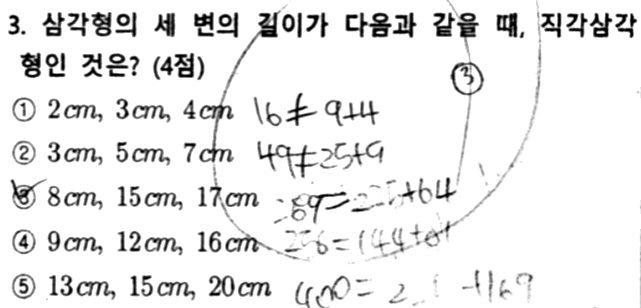 3. 삼각형의 세 변의 길이가 다음과 같을 때, 직각삼각
형인 것은? (4점)
③
① 2cm, 3cm, 4cm 16≠9+4
② 3cm, 5cm, 7cm 49≠25+9
③ 8cm, 15cm, 17cm
④ 9cm, 12cm, 16cm
⑤ 13cm, 15cm, 20cm 400=